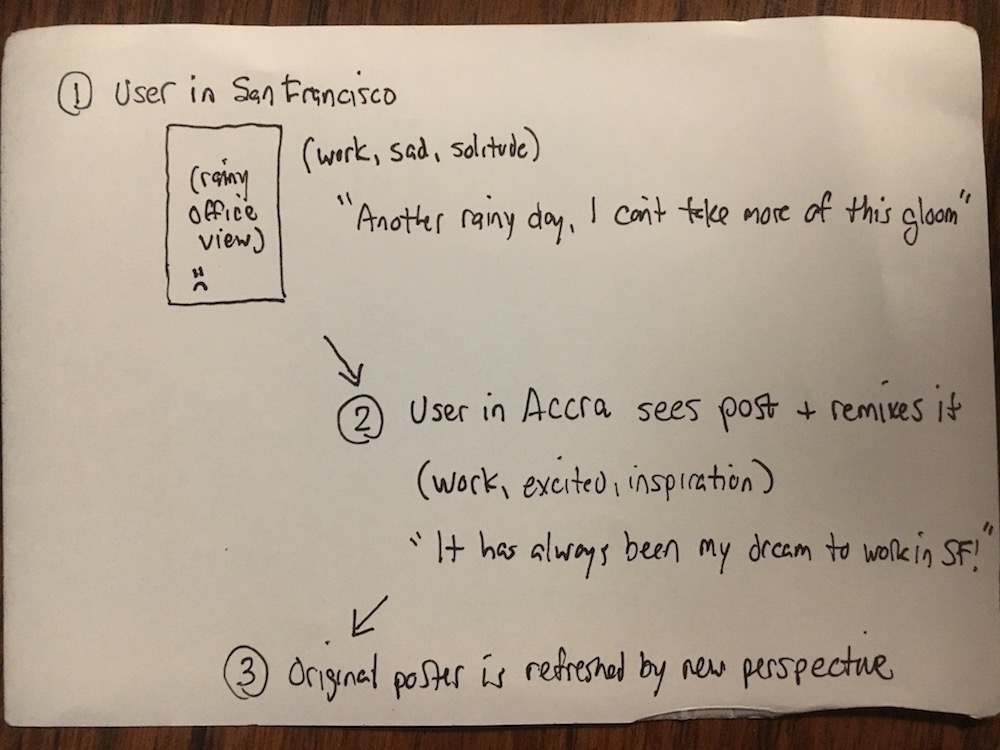 ① User in San Francisco
(rainy
office
view)
(work, sad, solitude)
"Another rainy day, I can't take more of this gloom"
② User in Accra sees post + remixes it
(work, excited, inspiration)
"It has always been my dream to work in SF!"
③ Original poster is refreshed by new perspective